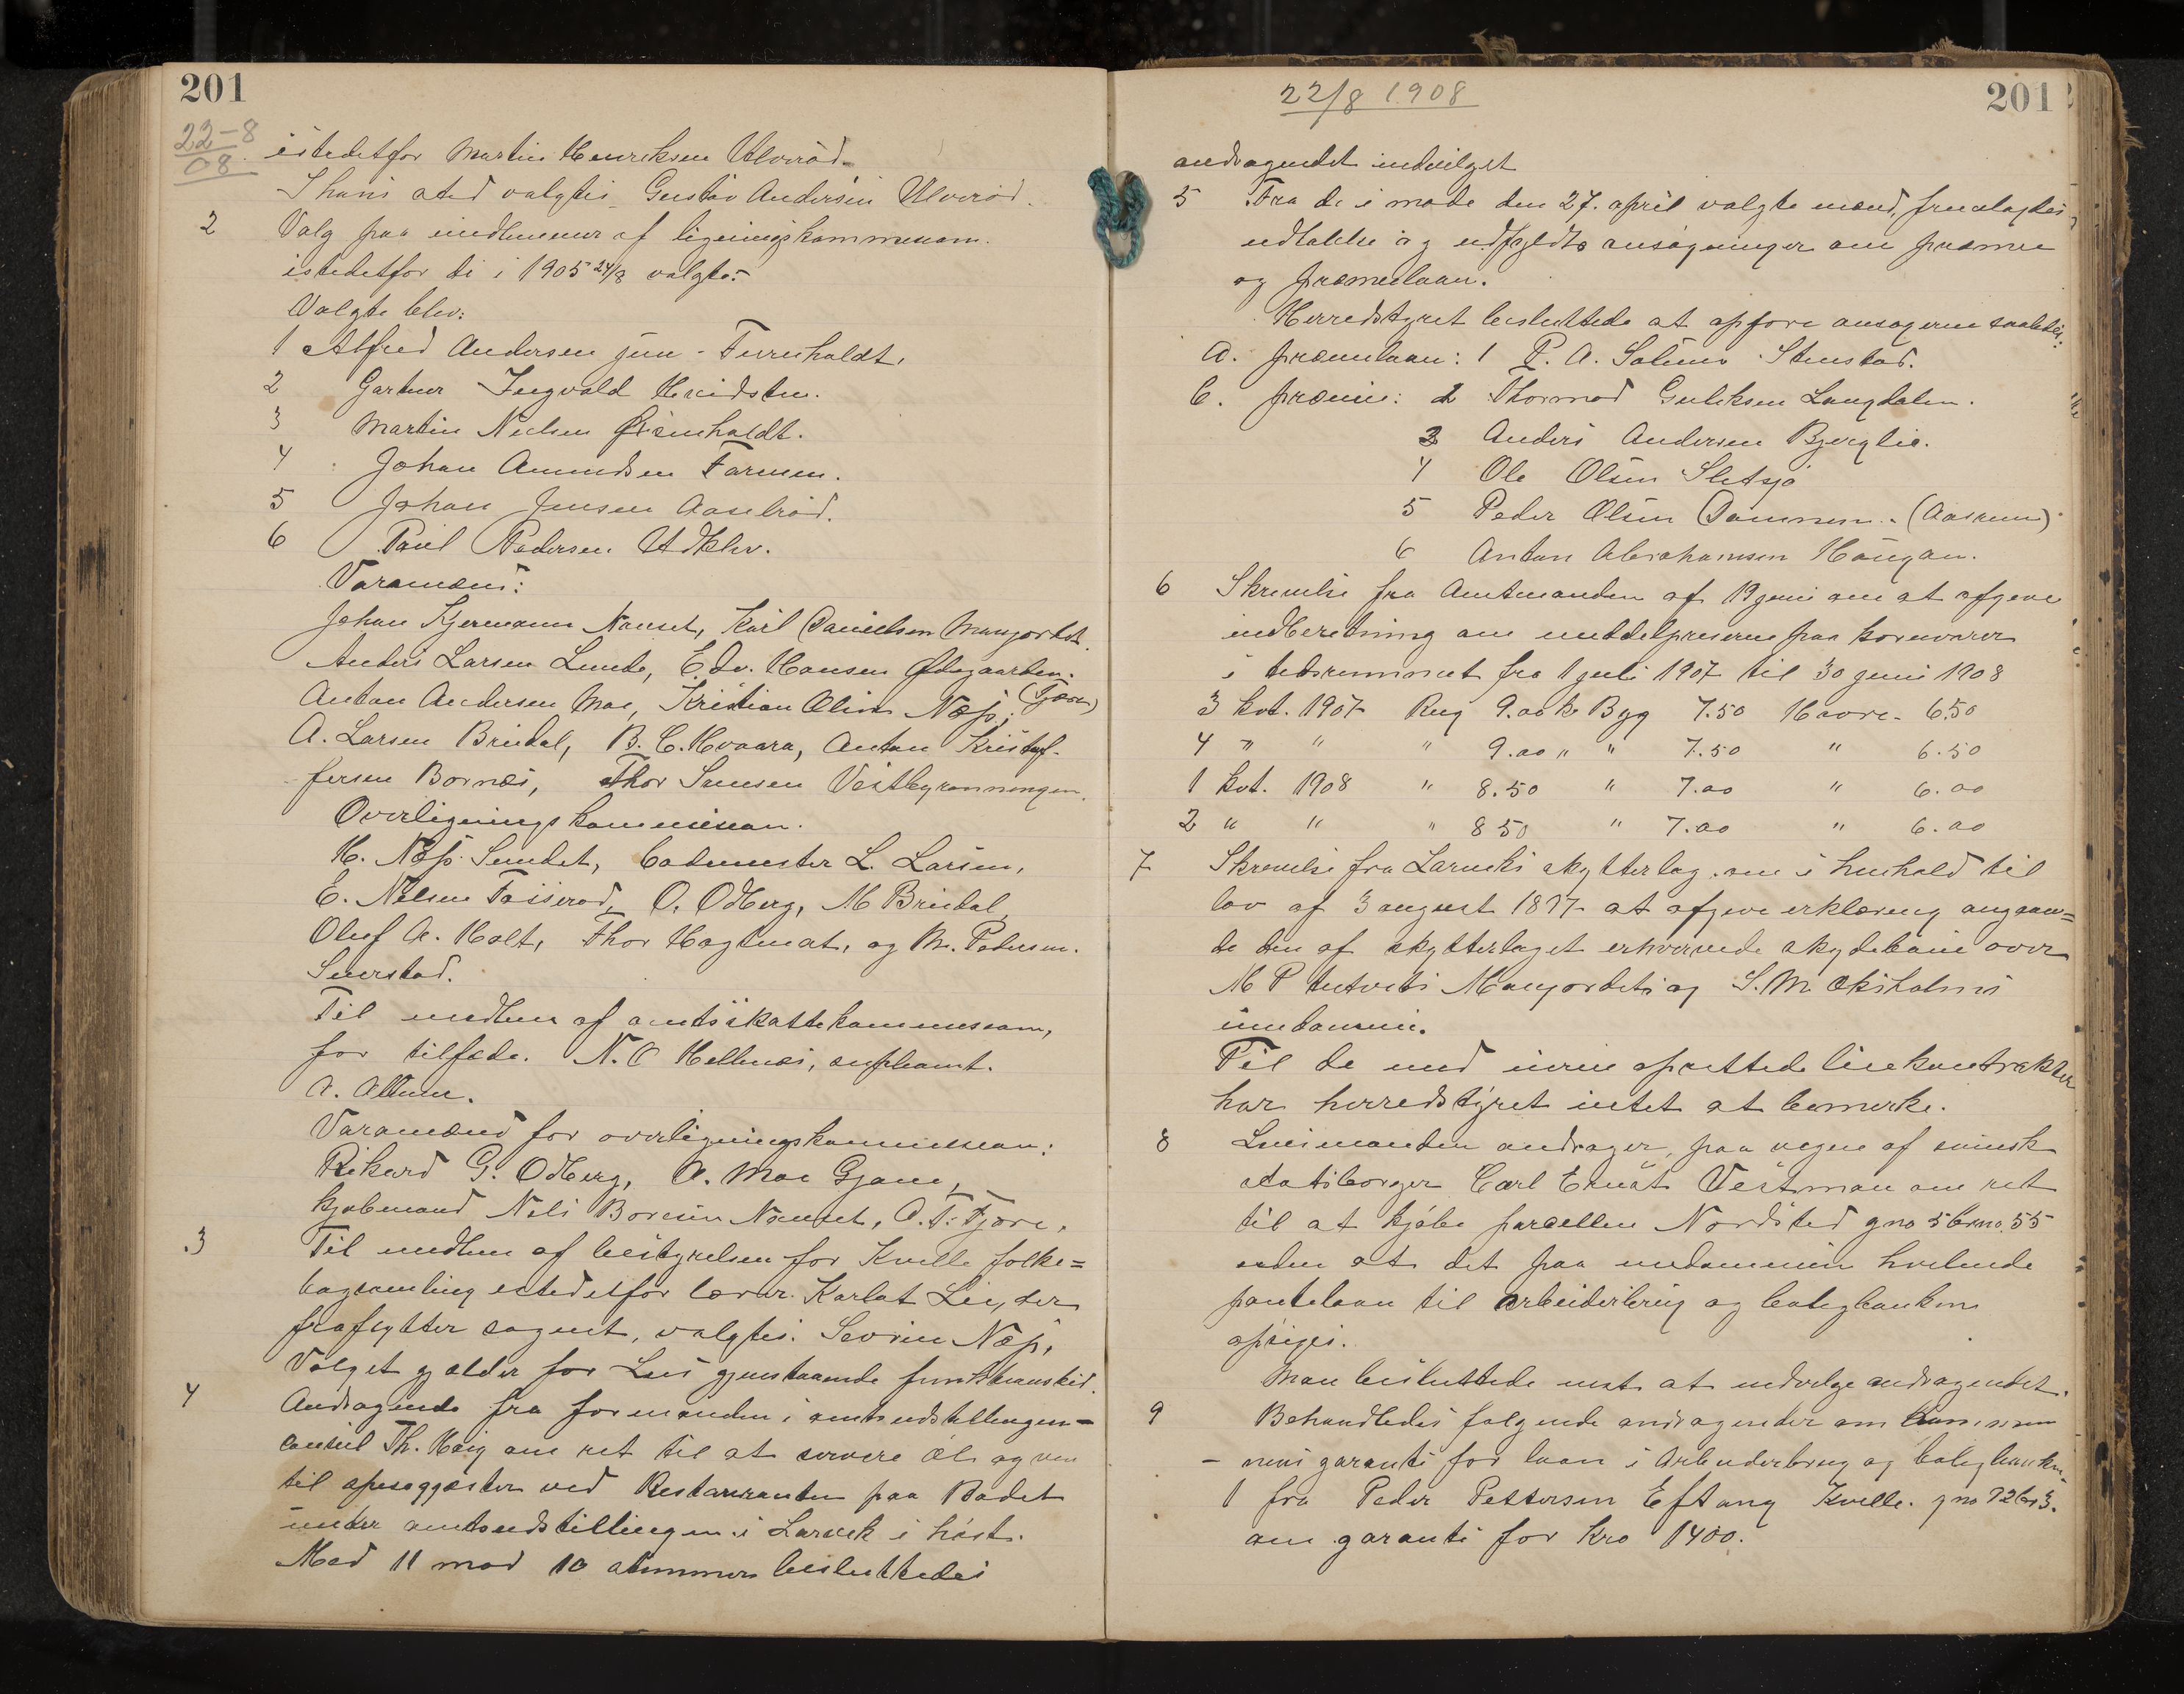 201
22-8
08.
istedetfor Martin Henriksen Ulverød.
I hans sted valgtes Gustav Andersen Ulverød.
2 Valg paa medlemmer af ligningskommission.
istedetfor de i 1905 24/8 valgte:
Valgte blev:
1 Alfred Andersen jun - Furuholdt,
2 Gartner Ingvald Kveidsten.
3 Martin Nielsen Grønholdt.
4 Johan Amundsen Farmen.
5 Johan Jensen Aaselrød.
6 Paul Pedersen Udklev.
Varamænd:
Johan Hjermann Nanset, Karl Danielsen Mangordet.
Anders Larsen Lunde, Edv. Hansen Ødegaarden.
Anton Andersen Moe, Kristian Olsen Næs, (Tjære)
A. Larsen Brudal, B. C. Kvaara, Anton Kristof-
fersen Bornæs, Thor Simsen Vestbyrønningen.
Overligningskommission.
H. Næs Sundet, bademester L. Larsen,
E. Nilsen Fosserød, O. Odberg, M Brudal,
Oluf A. Holt, Thor Hogstvat, og M. Pedersen.
Seierstad.
Til medlem af amtsskattekommission,
for tilfæde. N. O Hellenæs, supleant.
A. Allum.
Varamænd for overligningskommission:
Rikard G. Odberg, A. Moe Gjone,
Kjøbmand Nils Boresen Nanset, A. T. Tjøre,
3 Til medlem af bestyrelsen for Kvelle folke=
bogsamling istedetfor lærer Karlot Lie, der
fraflytter sognet, valgtes. Severin Næs,
Valget gjælder for Lies gjenstaaende funktionstid.
4 Andragende fra formanden i amtsudstillingen -
consul Th. Høeg om ret til at servere øl og vin
til spisegjæster ved Restauranten paa Badet
under amtsudstillingen i Larvik i høst.
Med 11 mod 10 stemmer besluttedes
22/8 1908
201
andragendet indvilget
5 Fra de i møde den 27. april valgte mænd, fremlagdes
udtalelse og udfyldte ansøgninger om præmie
og præmielaan.
Herredstyret besluttede at opføre ansøgerne saaledes:
a. præmielaan: 1 P. A. Solumo Stenstad.
b. præmie: 2 Thormod Guliksen Langdalen.
3 Anders Andersen Bjerglie.
4 Ole Olsen Sletsjø
5 Peder Olsen Dammen. (Aaskeim)
6 Anton Abrahamsen Haugan.
6 Skrivelse fra Amtmanden af 19 juni om at afgive
indberetning om middelpriserne paa kornvarer
i tidsrummet fra 1 juli 1907 til 30 juni 1908
3 kvt. 1907 Rug 9.00 kr Byg 7.50 Havre. 6.50
4 " " " 9.00 " " 7.50 " 6.50
1 kvt. 1908 " 8.50 " 7.00 " 6.00
2 " " " 8 50 " 7.00 " 6.00
7 Skrivelse fra Larviks skytterlag om i henhold til
lov af 3 august 1897 at afgive erklæring angaaen=
de den af skytterlaget erhvervede skydebane over
M P tutvets Mangordets og S. M. Oksholms
eiendomme.
Til de med eierne oprettede leiekontrakter
har herredstyret intet at bemerke.
8 Lensmanden andrager, paa vegne af svensk
statsborger Carl Ernst Vestman om ret
til at kjøbe parcellen Nordsted gno 5 brno. 55
uden at det paa eiendommen hvilende
pantelaan til arbeiderbrug og boligbanken
opsiges.
Man besluttede enst. at indvilge andragendet.
9 Behandledes følgende andragender om kommu
- nens garanti for laan i Arbeiderbrug og boligbanken
1 fra Peder Pettersen Eftang Kvelle. gno 72 br 3.
om garanti for Kro 1400.